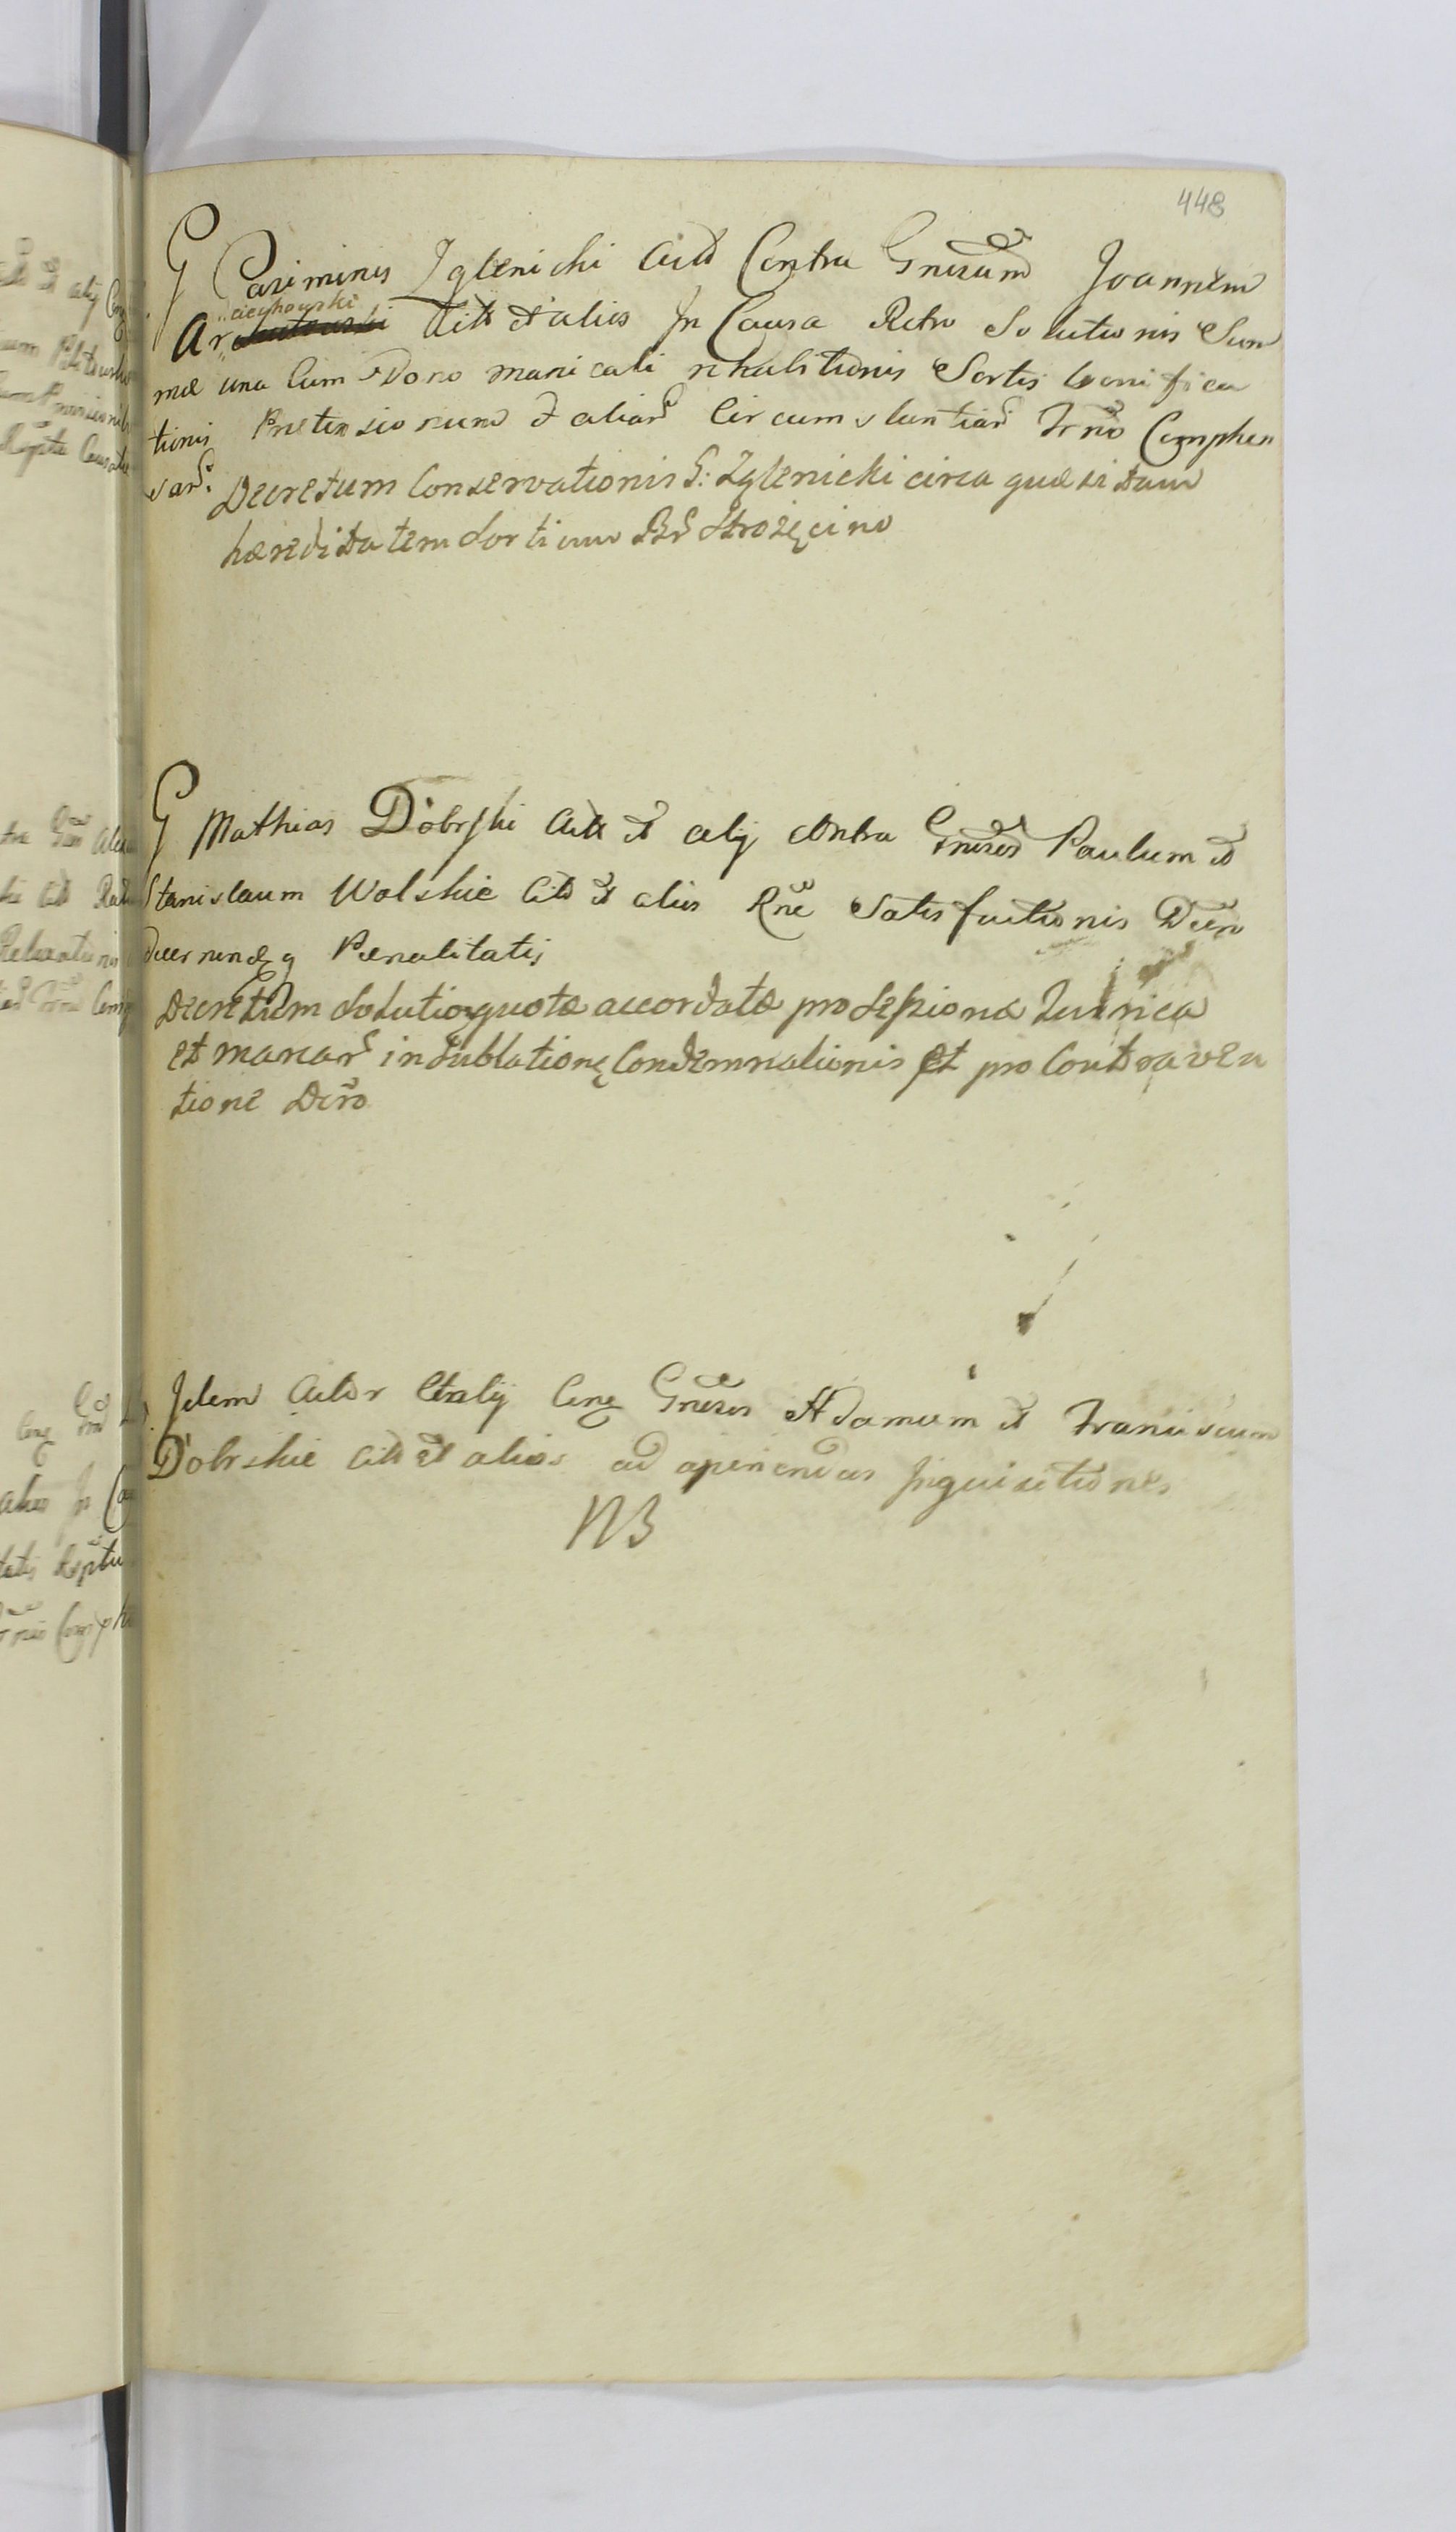 448
G Casimirus Zglenichi Actt Contra Gnērsum Joannem
Arciechowski Citt et alios In Causa Retro Solutionis Sum
mæ una Cum Dono manicali rehabitionis Sortis bonifica
tionis Prætensionum & aliar Circumstantiar Trno Comphen
sar:
Decretum Conservationis G: Zglenicki circa quæsitam
hæreditatem Sortium Bō Strożęcino
G Mathias Dobrski Actt et alÿ contra Gnēros Paulum et
Stanislaum Wolskie Citt et alios Rne Satisfactionis Decr
decernendæq Pænalitatis
Decretum Solutioq quotæ accordatæ pro Sessione Juirica
et marcar in Sublatione Condemnationis Et pro Contraven
tione Decro
Idem Actor Et alÿ Cenq Gnēros Adamum et Franciscum
Dobrskie Citt et alios ad aperiendas Inquisitiones
NB